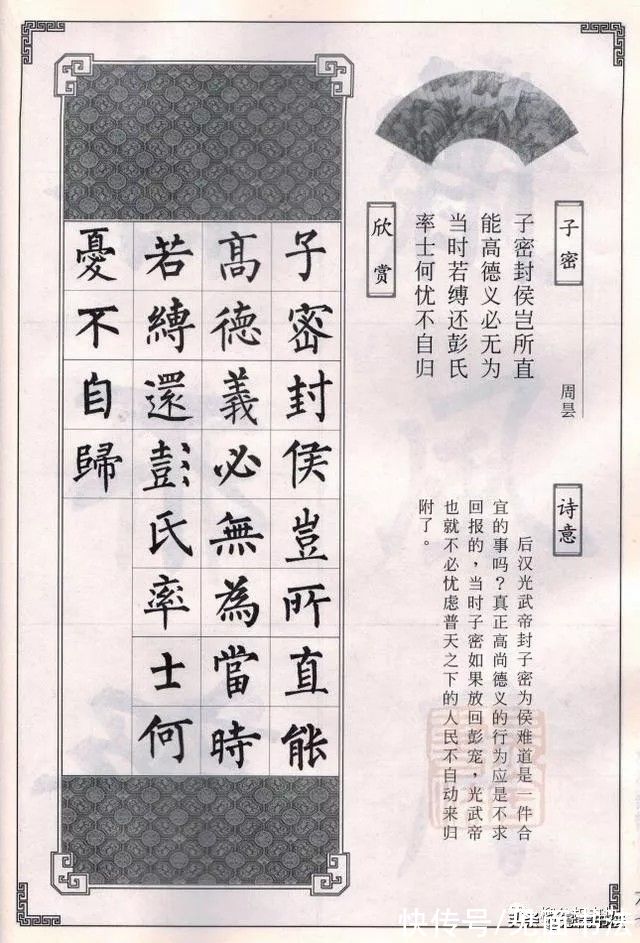 子密
周昙
子密封侯岂所直
能高德义必无为
当时若缚还彭氏
率士何忧不自归
欣赏
诗意
后汉光武帝封子密为侯难道是一件合
宜的事吗？真正高尚德义的行为应是不求
回报的，当时子密如果放回彭宠，光武帝
也就不必忧虑普天之下的人民不自动来归
附了。
子密封侯豈所直能
高德義必無為當時
若縛還彭氏率士何
憂不自歸
快传号/